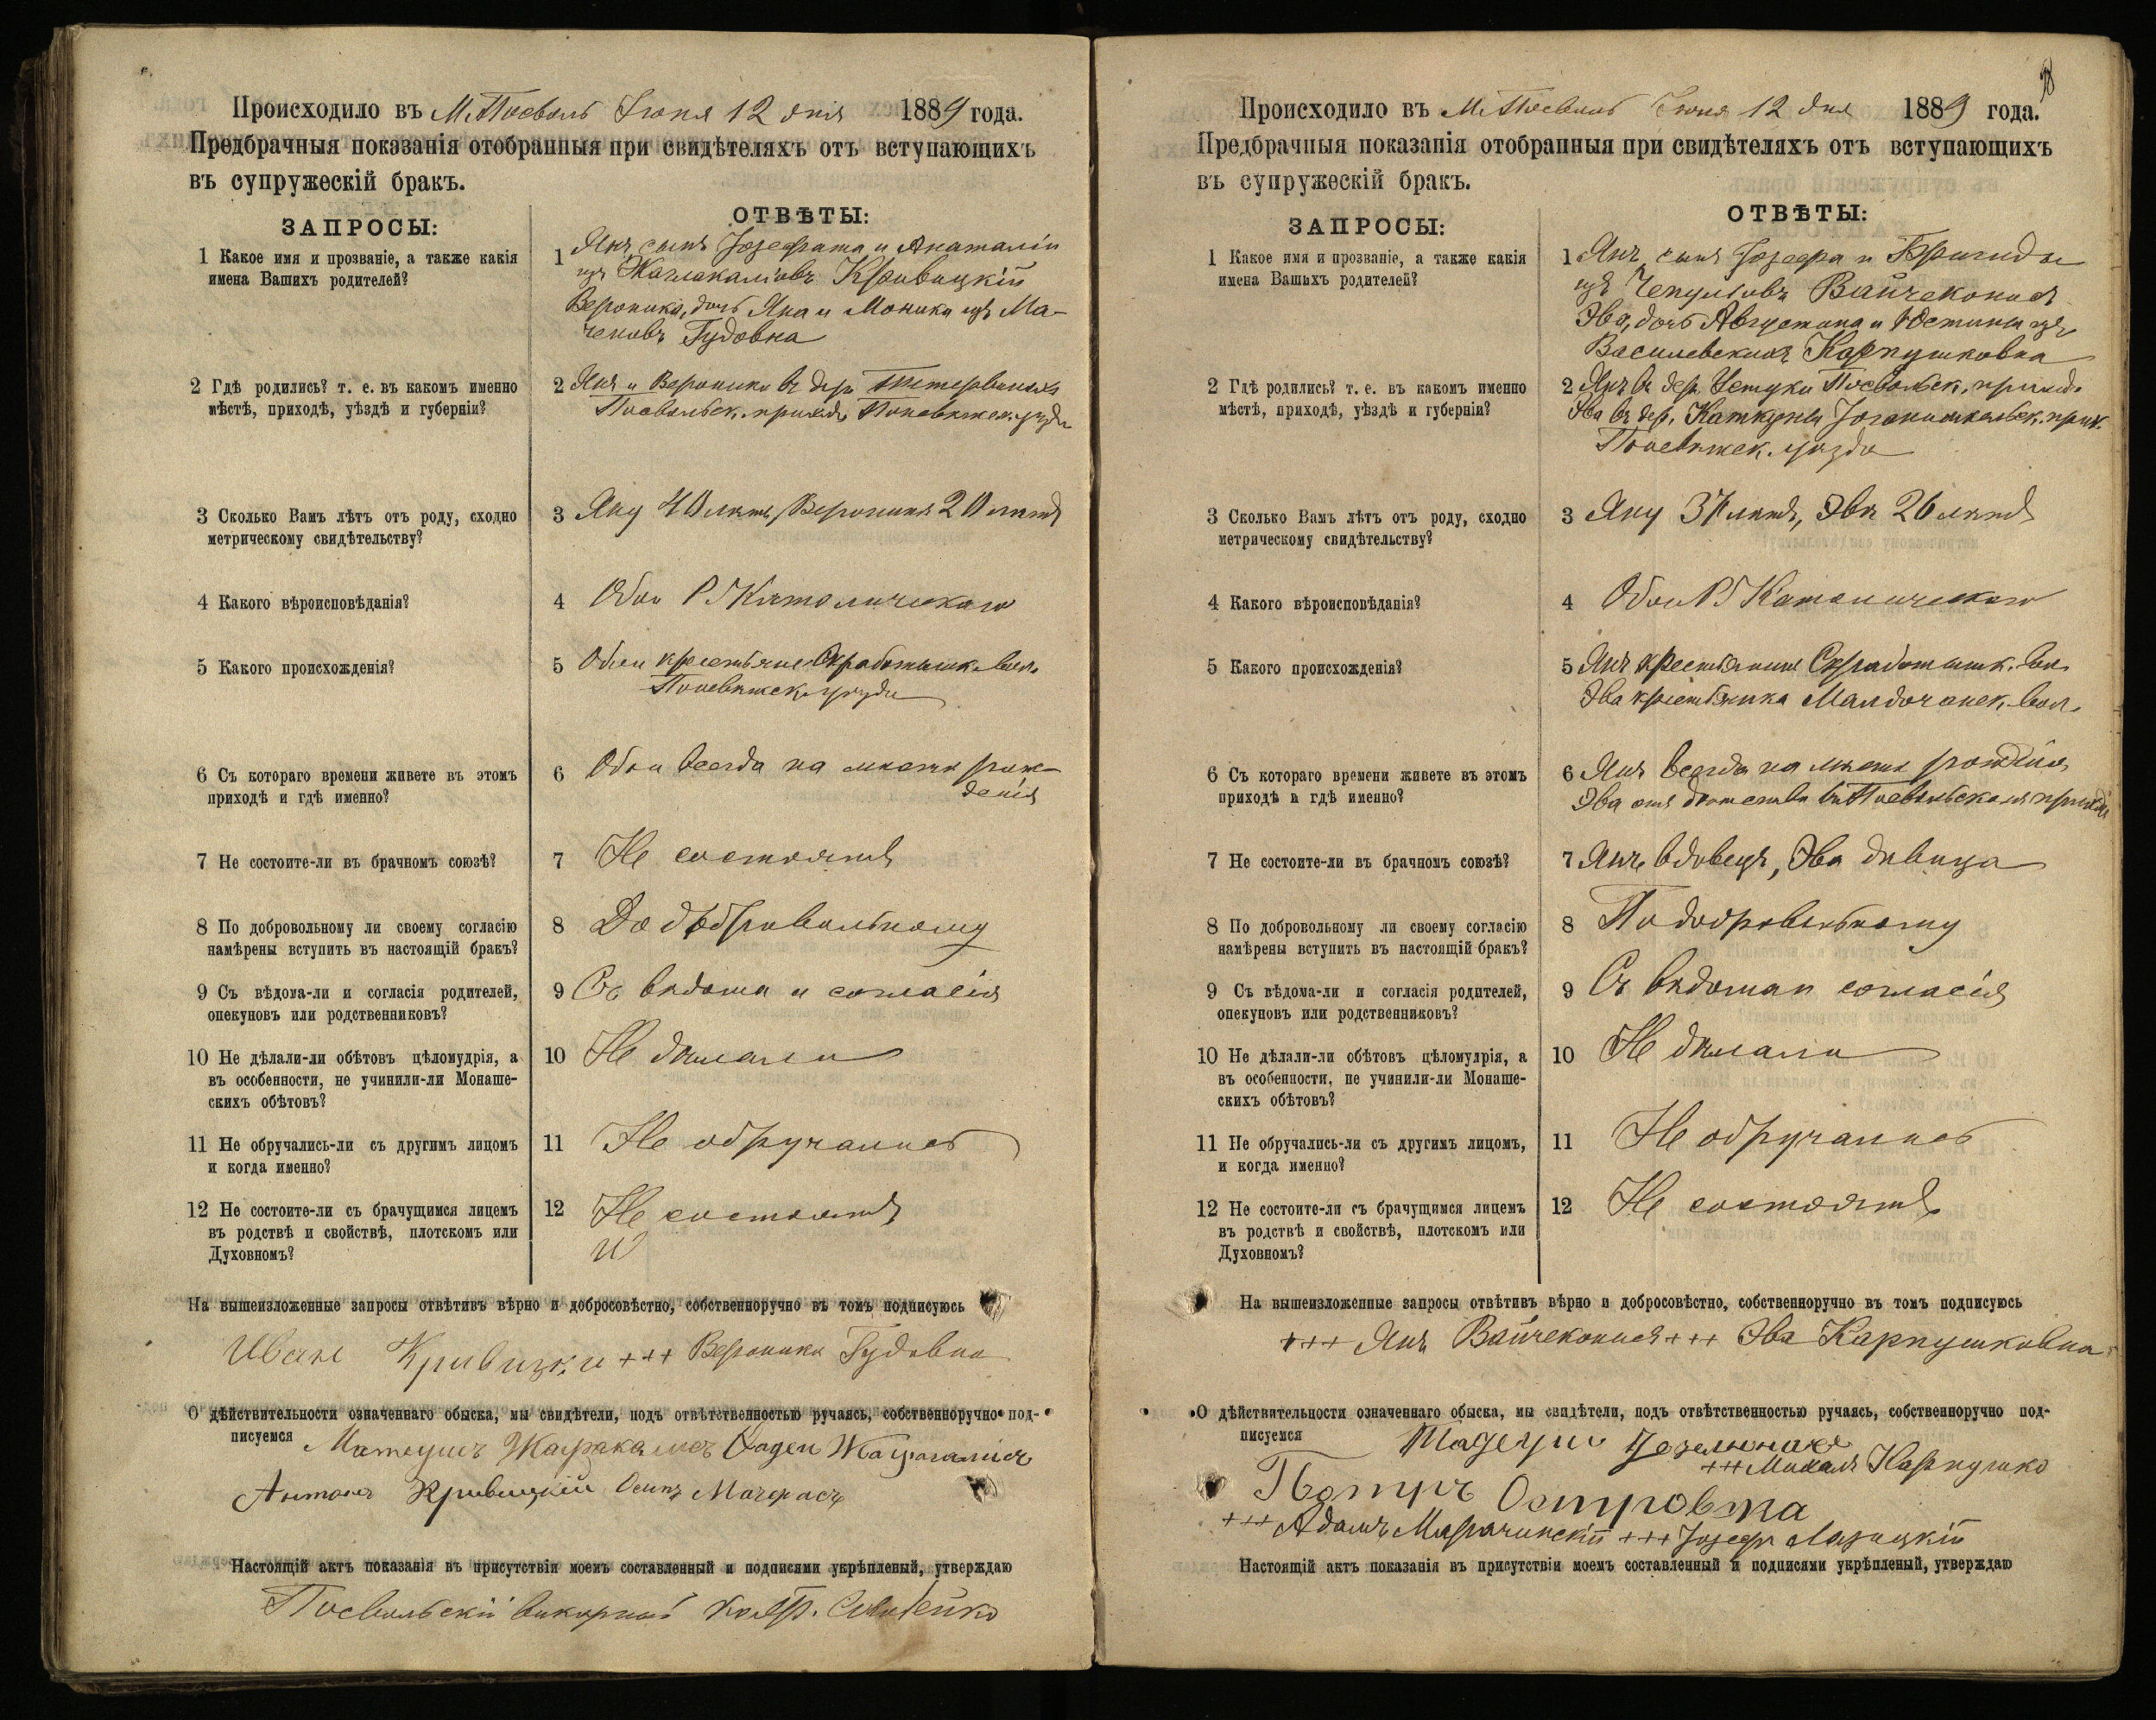 Происходило въ М. Посволь Іюня 12 дня 1889 года.
Предбрачныя показанія отобранныя при свидѣтеляхъ отъ вступающихъ
въ супружескій бракъ.
ЗАПРОСЫ:
ОТВѢТЫ:
1 Какое имя и прозваніе, а также какія
имена Вашихъ родителей?
1 Янъ, сынъ Іозефата и Анаталіи
изъ Кривицкій
Вероника, дочь Яна и Моники изъ Ма-
Гудовна
2 Гдѣ родились? т. е. въ какомъ именно
мѣстѣ, приходѣ, уѣздѣ и губерніи?
2 Янъ и Вероника въ дер.
Посвольск. прихода Поневѣжск. уѣзда
3 Сколько Вамъ лѣтъ отъ роду, сходно
метрическому свидѣтельству?
3 Яну 40 лѣтъ, Вероникѣ 20 лѣтъ
4 Какого вѣроисповѣданія?
4 Обои Р Католическаго
5 Какого происхожденія?
5 Обои крестьяне Скработишк. вол.
Поневѣжск. уѣзда
6 Съ котораго времени живете въ этомъ
приходѣ и гдѣ именно?
6 Обои всегда на мѣстѣ рож-
денія
7 Не состоите-ли въ брачномъ союзѣ?
7 Не состоятъ
8 По добровольному ли своему согласію
намѣрены вступить въ настоящій бракъ?
8 добровольному
9 Съ вѣдома-ли и согласія родителей,
опекуновъ или родственниковъ?
9 Съ вѣдома и согласія
10 Не дѣлали-ли обѣтовъ цѣломудрія, а
въ особенности, не учинили-ли Монаше-
скихъ обѣтовъ?
10 Не дѣлали
11 Не обручались-ли съ другимъ лицомъ
и когда именно?
11 Не обручались
12 Не состоите-ли съ брачущимся лицемъ
въ родствѣ и свойствѣ, плотскомъ или
Духовномъ?
12 Не состоятъ
На вышеизложенные запросы отвѣтивъ вѣрно и добросовѣстно, собственноручно въ томъ подписуюсь
Иванъ Кривицки +++ Вероника Гудовна
О дѣйствительности означеннаго обыска, мы свидѣтели, подъ отвѣтственностью ручаясь, собственноручно под-
писуемся
Антонъ Кривицкій Осипъ
Настоящій актъ показанія въ присутствіи моемъ составленный и подписями укрѣпленый, утверждаю
Посвольскій викарный

Происходило въ М. Посволь Іюня 12 дня 1889 года.
Предбрачныя показанія отобранныя при свидѣтеляхъ отъ вступающихъ
въ супружескій бракъ.
ЗАПРОСЫ:
ОТВѢТЫ:
1 Какое имя и прозваніе, а также какія
имена Вашихъ родителей?
1 Янъ, сынъ Іозефа и Бригиды
изъ Вайчеконисъ
Эва, дочь Августина и Юстины изъ
Василевскихъ Карпушковна
2 Гдѣ родились? т. е. въ какомъ именно
мѣстѣ, приходѣ, уѣздѣ и губерніи?
2 Янъ въ дер. Устуки Посвольск. прихода
Эва въ дер. Каткуны Іоганишкельск. прих.
Поневѣжск. уѣзда
3 Сколько Вамъ лѣтъ отъ роду, сходно
метрическому свидѣтельству?
3 Яну 37 лѣтъ, Эвѣ 26 лѣтъ
4 Какого вѣроисповѣданія?
4 Обои Р Католическаго
5 Какого происхожденія?
5 Янъ крестьянинъ Скработишк. вол.
Эва крестьянка вол.
6 Съ котораго времени живете въ этомъ
приходѣ и гдѣ именно?
6 Янъ всегда на мѣстѣ рожденія
Эва отъ дѣтства въ Посвольскомъ приходѣ
7 Не состоите-ли въ брачномъ союзѣ?
7 Янъ вдовецъ, Эва дѣвица
8 По добровольному ли своему согласію
намѣрены вступить въ настоящій бракъ?
8 По добровольному
9 Съ вѣдома-ли и согласія родителей,
опекуновъ или родственниковъ?
9 Съ вѣдома и согласія
10 Не дѣлали-ли обѣтовъ цѣломудрія, а
въ особенности, не учинили-ли Монаше-
скихъ обѣтовъ?
10 Не дѣлали
11 Не обручались-ли съ другимъ лицомъ,
и когда именно?
11 Не обручались
12 Не состоите-ли съ брачущимся лицемъ
въ родствѣ и свойствѣ, плотскомъ или
Духовномъ?
12 Не состоятъ
На вышеизложенные запросы отвѣтивъ вѣрно и добросовѣстно, собственноручно въ томъ подписуюсь
+++ Янъ Вайчеконисъ +++ Эва Карпушковна
О дѣйствительности означеннаго обыска, мы свидѣтели, подъ отвѣтственностью ручаясь, собственноручно под-
писуемся
+++ Михалъ Карпушко
+++ Адамъ Марачинскій +++ Іозефъ
Настоящій актъ показанія въ присутствіи моемъ составленный и подписями укрѣпленый, утверждаю